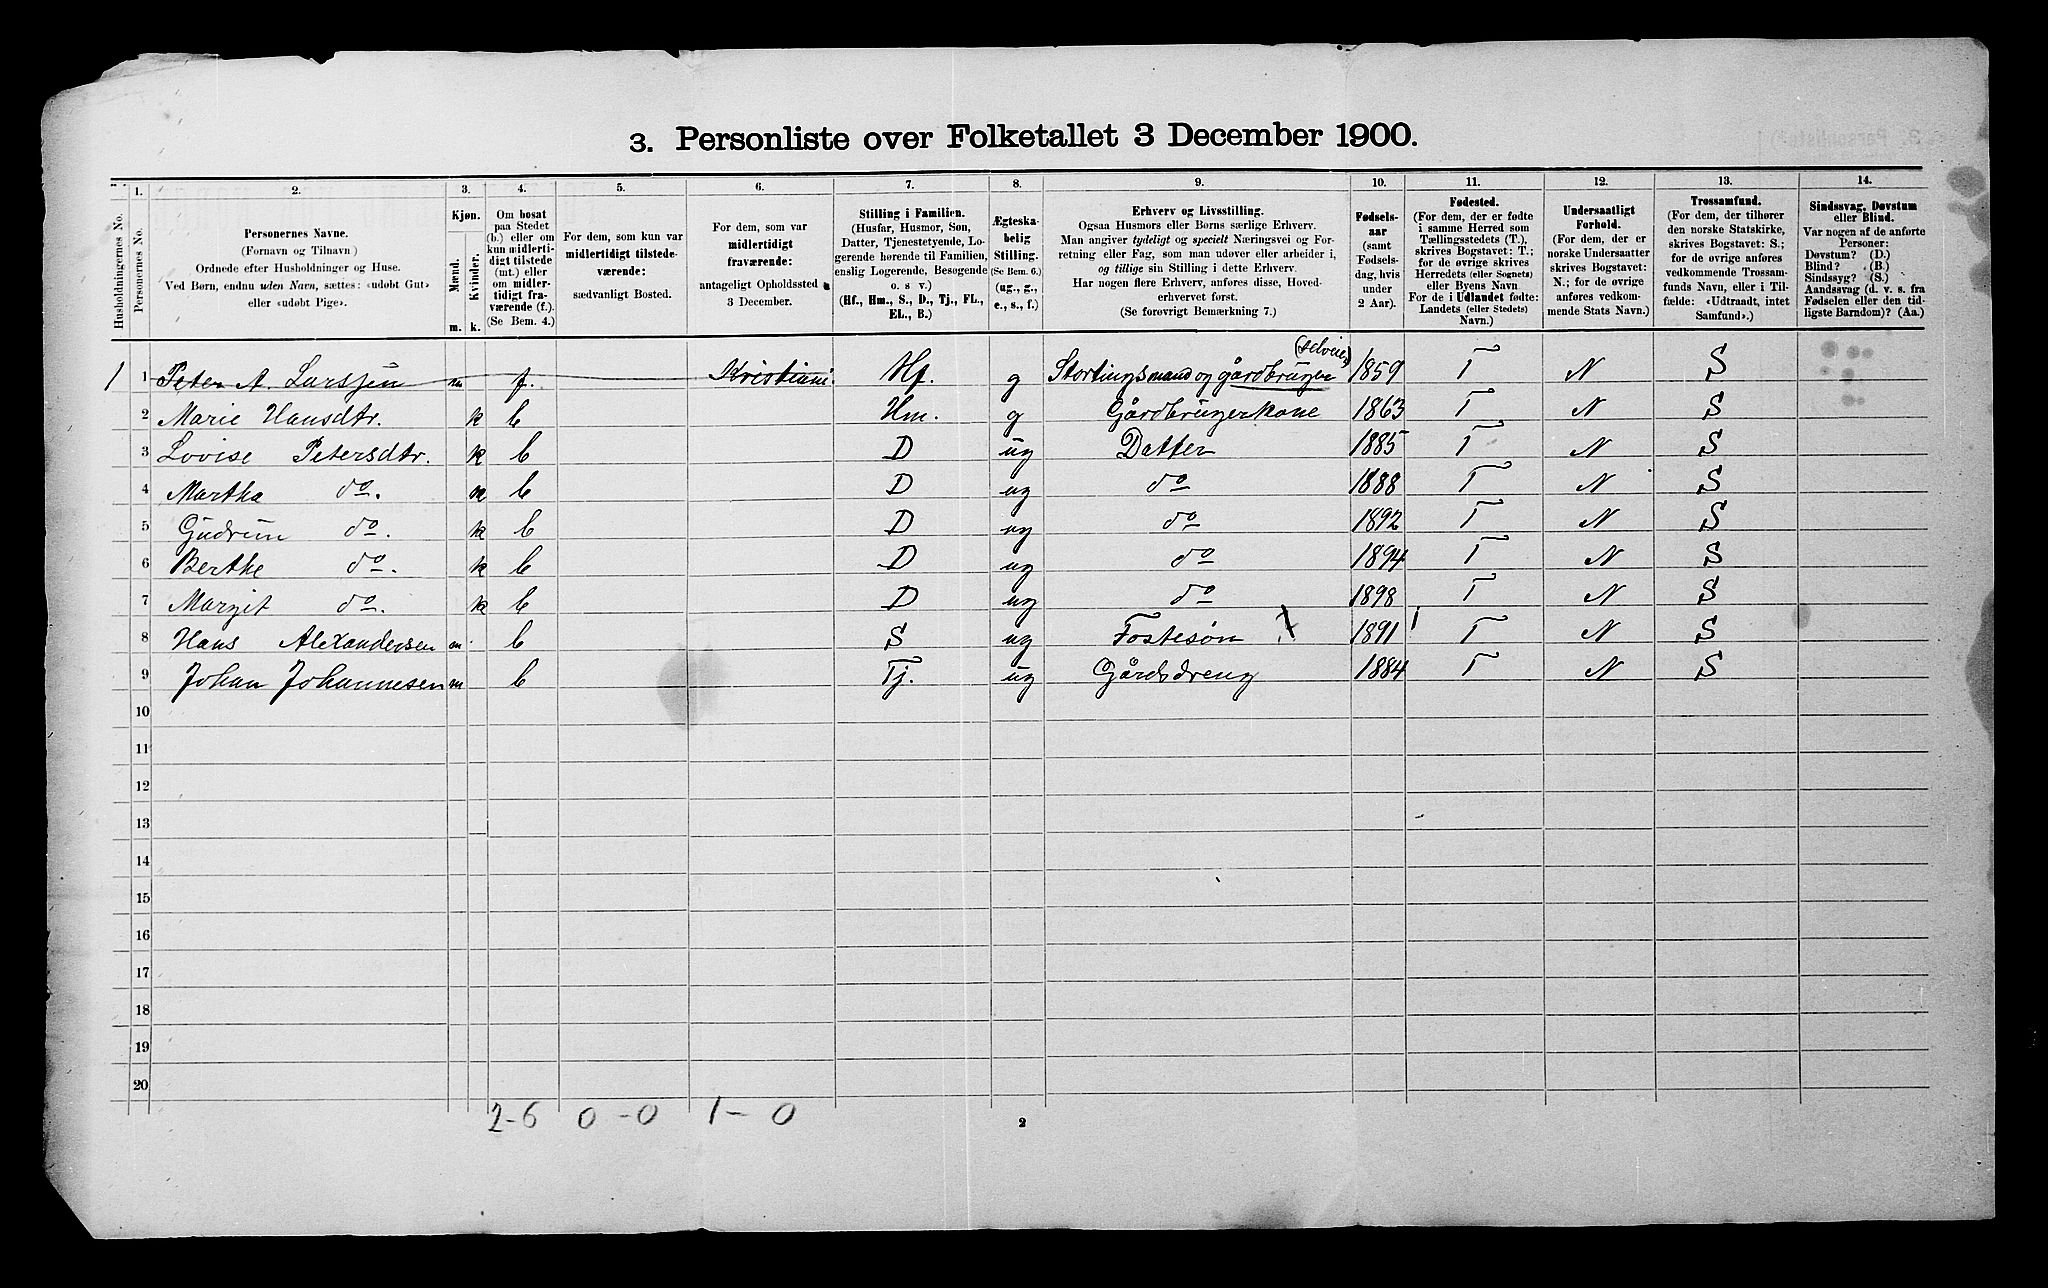 3. Personliste over Folketallet 3 December 1900.
1. 2. 3. 4. 5. 6. 7. 8. 9. 10. 11. 12. 13. 14.
Husholdningernes No.
Personernes No.
Personernes Navne.
(Fornavn og Tilnavn)
Ordnede efter Husholdninger og Huse.
Ved Børn, endnu uden Navn, sættes: «udøbt Gut»
eller «udøbt Pige».
Kjøn.
Mænd. Kvinder.
m. k.
Om bosat
paa Stedet
(b.) eller om
kun midlerti-
digt tilstede
(mt.) eller
om midler-
tidigt fra-
værende (f.).
(Se Bem. 4.)
For dem, som kun var
midlertidigt tilstede-
værende:
sædvanligt Bosted.
For dem, som var
midlertidigt
fraværende:
antageligt Opholdssted
3 December.
Stilling i Familien.
(Husfar, Husmor, Søn,
Datter, Tjenestetyende, Lo-
gerende hørende til Familien,
enslig Logerende, Besøgende
o. s v.)
(Hf., Hm., S., D., Tj., FL.,
EL., B.)
Ægteska-
belig
Stilling.
(Se Bem. 6.)
(ug., g.,
e., s., f.)
Erhverv og Livsstilling.
Ogsaa Husmors eller Børns særlige Erhverv.
Man angiver tydeligt og specielt Næringsvei og For-
retning eller Fag, som man udøver eller arbeider i,
og tillige sin Stilling i dette Erhverv.
Har nogen flere Erhverv, anføres disse, Hoved-
erhvervet først.
(Se forøvrigt Bemærkning 7.)
Fødsels-
aar
(samt
Fødsels-
dag, hvis
under
2 Aar).
Fødested.
(For dem, der er fødte
i samme Herred som
Tællingsstedets (T.),
skrives Bogstavet: T.;
for de øvrige skrives
Herredets (eller Sognets)
eller Byens Navn
For de i Udlandet fødte:
Landets (eller Stedets)
Navn.)
Undersaatligt
Forhold.
(For dem, der er
norske Undersaatter
skrives Bogstavet:
N.; for de øvrige
anføres vedkom-
mende Stats Navn.)
Trossamfund.
(For dem, der tilhører
den norske Statskirke,
skrives Bogstavet: S.;
for de øvrige anføres
vedkommende Trossam-
funds Navn, eller i Til-
fælde: «Udtraadt, intet
Samfund».)
Sindssvag, Døvstum
eller Blind.
Var nogen af de anførte
Personer:
Døvstum? (D.)
Blind? (B.)
Sindssyg? (S.)
Aandssvag (d. v. s. fra
Fødselen eller den tid-
ligste Barndom)? (Aa.)
(selveier)
1 1 Peter A. Larssen m f. Kristiani. Hf. g Stortingsmand og gårdbruger 1859 T N S
2 Marie Hansdtr. k b Hm. g Gårdbrugerkone 1863 T N S
3 Lovise Petersdtr. k b D ug Datter 1885 T N S
4 Martha do. k b D ug do 1888 T N S
5 Gudrun do. k b D ug do 1892 T N S
6 Berthe do. k b D ug do 1894 T N S
7 Margit do. k b D ug do 1898 T N S
8 Hans Alexandersen m. b S ug Fostesøn 1891 T N S
9 Johan Johannesen m b Tj. ug Gårdsdreng 1884 T N S
10
11
12
13
14
15
16
17
18
19
20
2-6 0-0 1-0
2